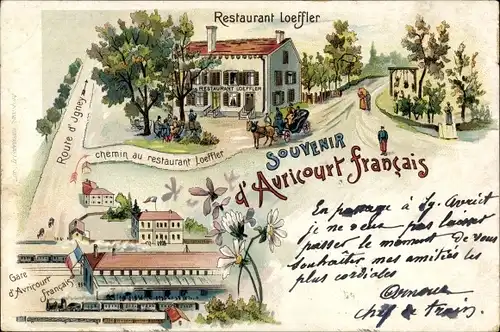 Restaurant Loeffler
RESTAURANT LOEFFLER
Route d'Igney
chemin au restaurant Loeffler
SOUVENIR
d'Avricourt français
Gare
d'Avricourt
Français
En passage à Ig. Avrit
je ne veux pas laisser
passer le moment de vous
souhaiter mes amitiés les
plus cordiales
chef de train